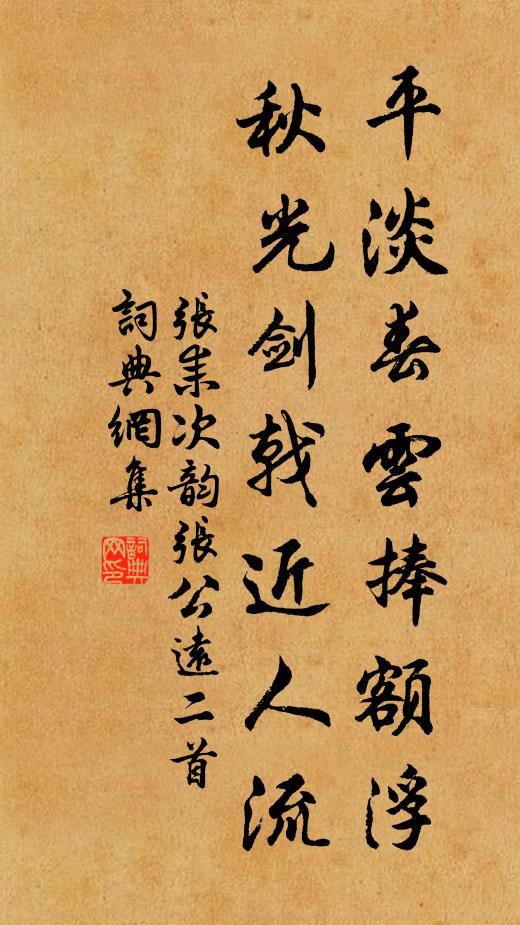 平淡春雲捧額浮
秋光劍戟近人流
張耒次韵張公遠二首
詞典網集
詞典网印